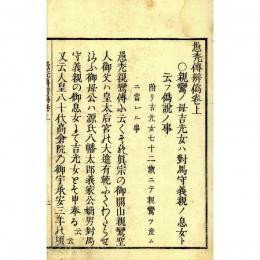 愚禿傳辨僞卷上
〇親鸞ノ母吉光女ハ對馬守義親ノ息女ト
云フ僞説ノ事
附リ吉光女七十二歳ニテ親鸞ヲ産ム
ニ當ル事
愚禿親鸞傳ニ云くそれ眞宗の御開山親鸞聖
人御父ハ皇太后宮の大進有範ふてわたらせ
給ふ御母公ハ源氏八幡太郎義家公嫡男對馬
守義親の御息女にて吉光女とそ申奉る云云
又云人皇八十代高倉院の御宇承安三年の頃